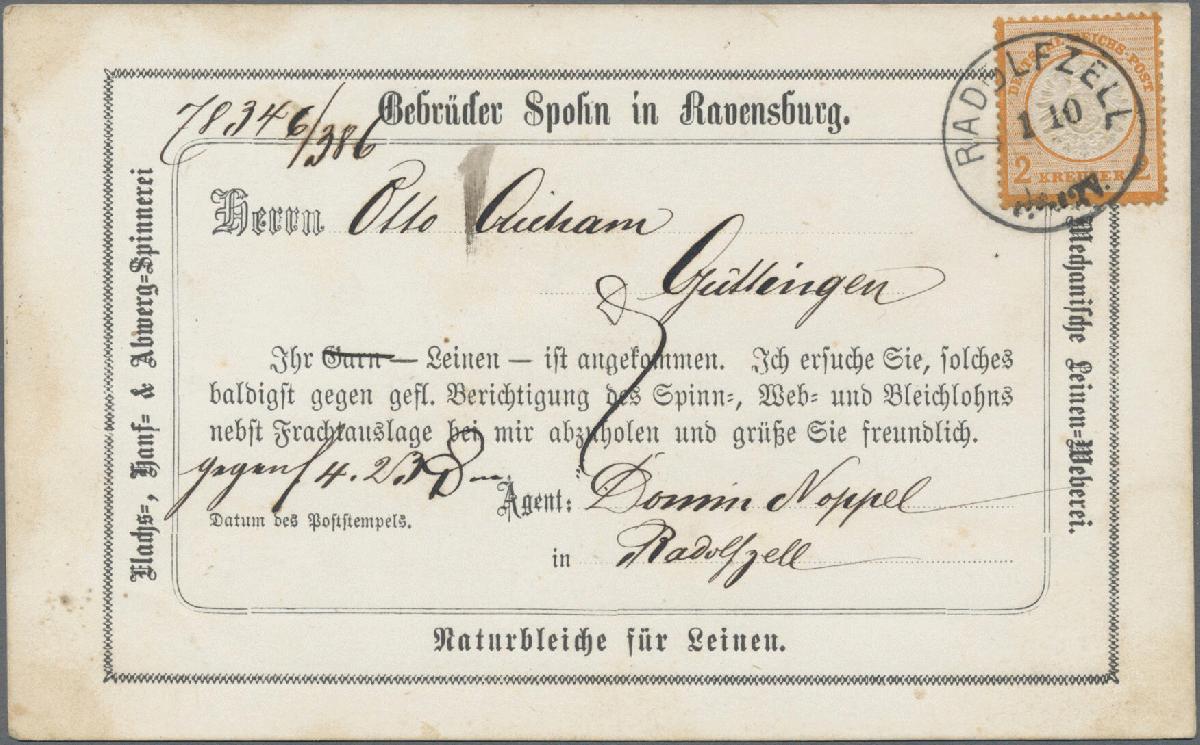 78346/386
Gebrüder Spohn in Ravensburg.
DEUTSCHE REICHS-POST
2 KREUZER 2
RADOLFZELL
1 10
Herrn Otto
Güttingen
Flachs-, Hanf- & Abwerg-Spinnerei
Mechanische Leinen-Weberei.
Ihr Garn — Leinen — ist angekommen. Ich ersuche Sie, solches
baldigst gegen gefl. Berichtigung des Spinn-, Web- und Bleichlohns
nebst Frachtauslage bei mir abzuholen und grüße Sie freundlich.
gegen f 4. 23
Agent: Domin Noppel
Datum des Poststempels.
in Radolfzell
Naturbleiche für Leinen.